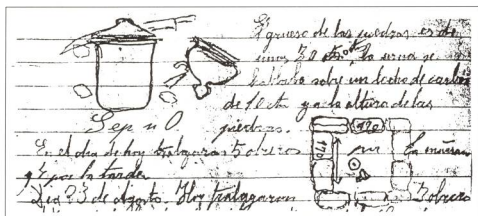 El grueso de las piedras es de
unos 30 cts la urna se
hallaba sobre un lecho de carbon
de 10 cm y a la altura de las
piedras.
Sep n 0.
En el dia de hoy trabajaron 5 obreros por la mañana
y por la tarde
Dia 23 de Agosto. Hoy trabajaron 3 obreros